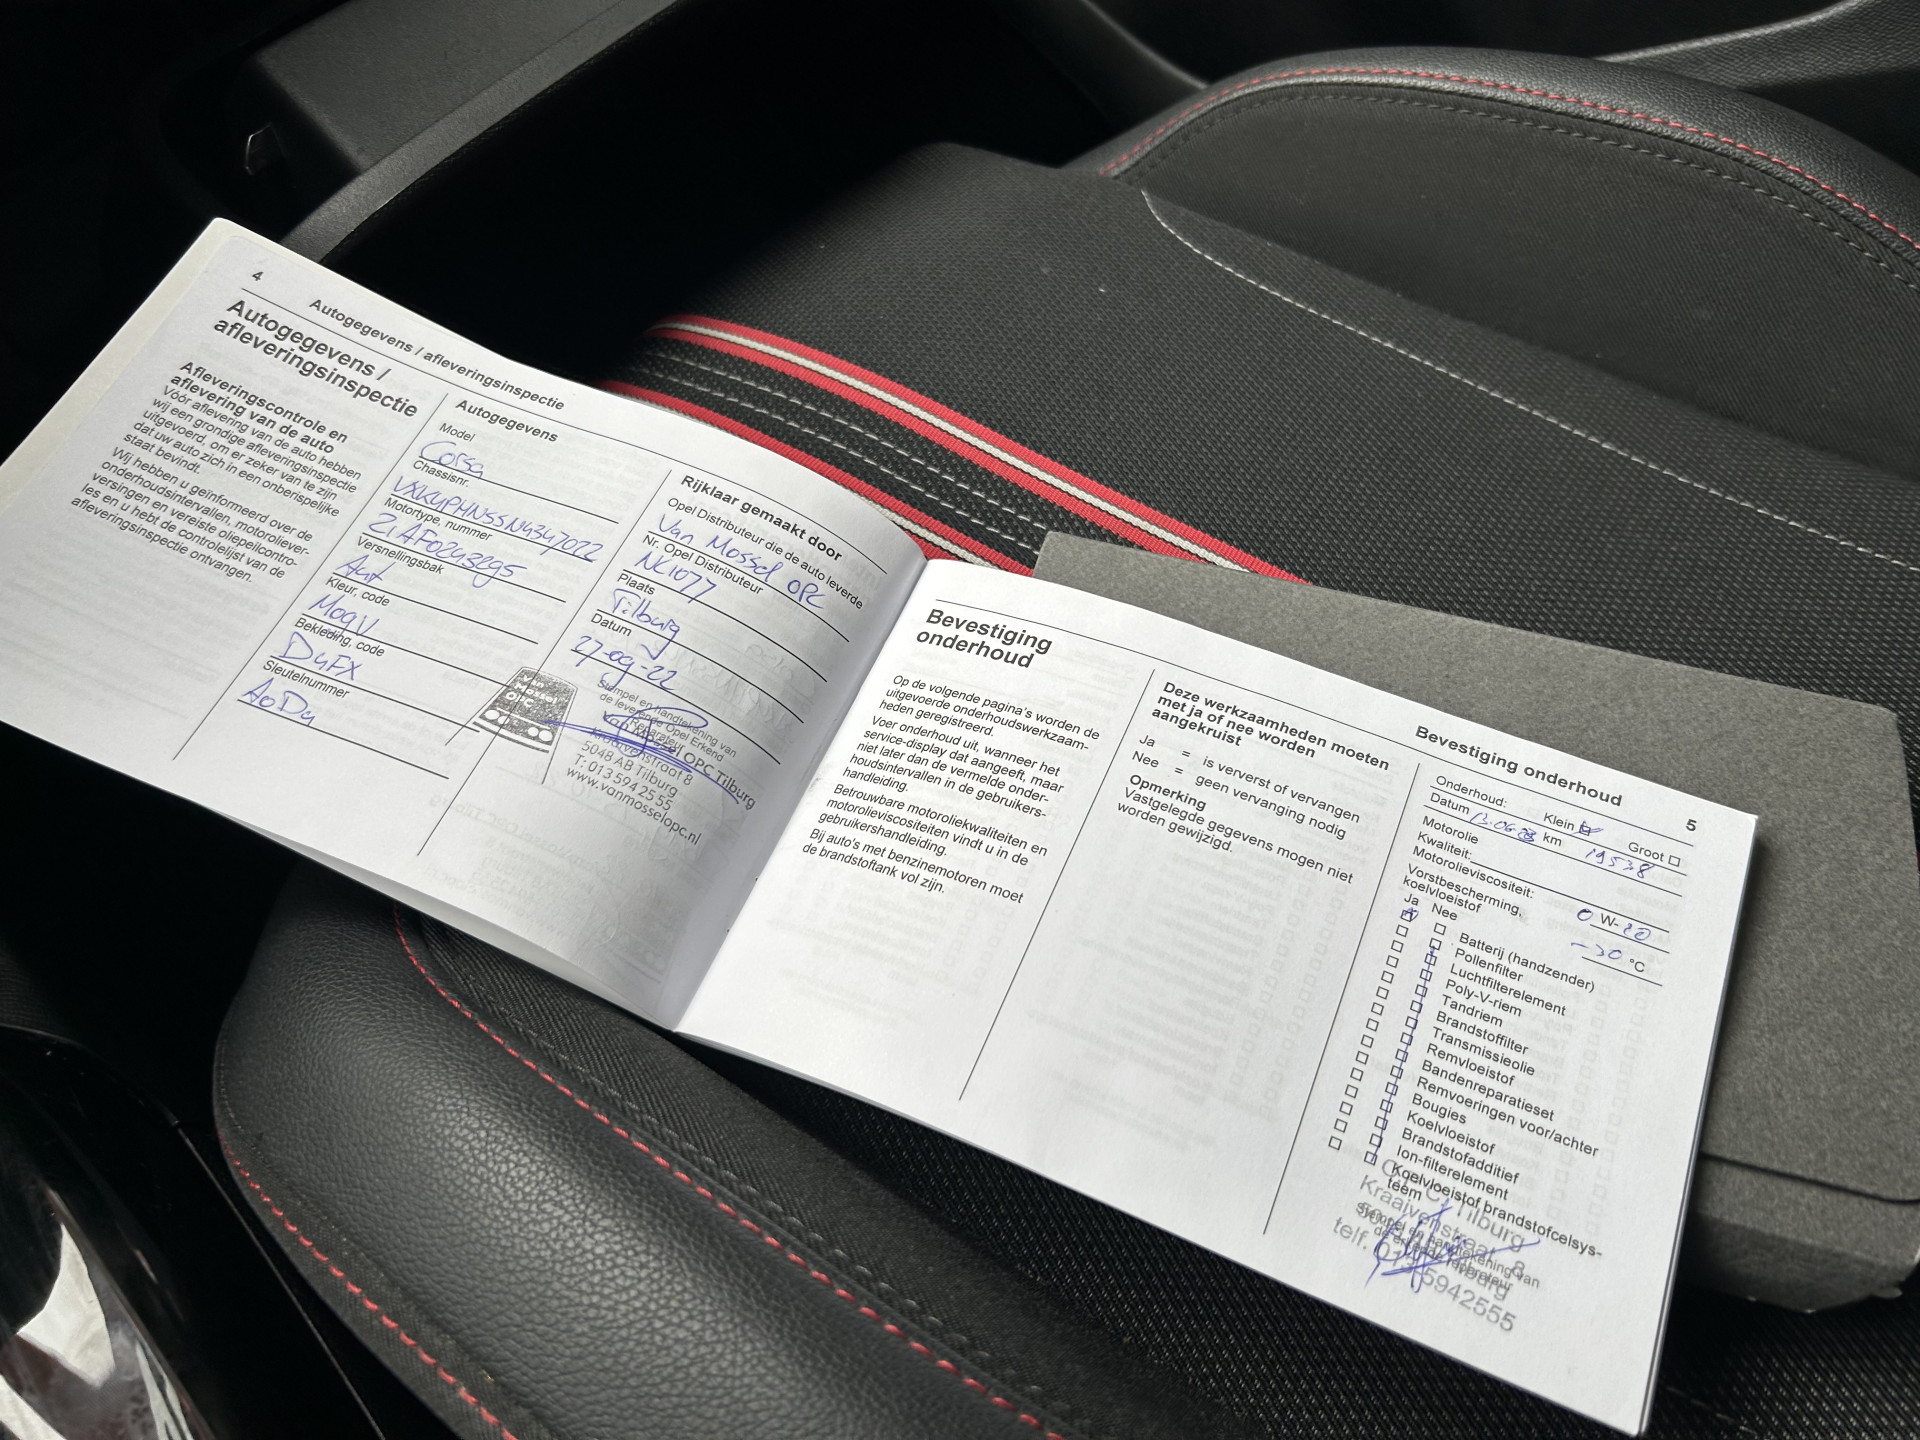 4
Autogegevens / afleveringsinspectie
Autogegevens /
afleveringsinspectie
Afleveringscontrole en
aflevering van de auto
Vóór aflevering van de auto hebben
wij een grondige afleveringsinspectie
uitgevoerd, om er zeker van te zijn
dat uw auto zich in een onberispelijke
staat bevindt.
Wij hebben u geïnformeerd over de
onderhoudsintervallen, motoroliever-
versingen en vereiste oliepeilcontro-
les en u hebt de controlelijst van de
afleveringsinspectie ontvangen.
Autogegevens
Model
Corsa
Chassisnr.
Motortype, nummer
Versnellingsbak
Aut
Kleur, code
Bekleding, code
D4FX
Sleutelnummer
Rijklaar gemaakt door
Opel Distributeur die de auto leverde
Van Mossel OPC
Nr. Opel Distributeur
NL1077
Plaats
Tilburg
Datum
27-09-22
Stempel en handtekening van
de leverende Opel Erkend
Reparateur
Van
Mossel
OPC
Van Mossel OPC Tilburg
Kraaivenstraat 8
5048 AB Tilburg
T: 013 594 25 55
www.vanmosselopc.nl
Bevestiging
onderhoud
Op de volgende pagina's worden de
uitgevoerde onderhoudswerkzaam-
heden geregistreerd.
Voer onderhoud uit, wanneer het
service-display dat aangeeft, maar
niet later dan de vermelde onder-
houdsintervallen in de gebruikers-
handleiding.
Betrouwbare motoroliekwaliteiten en
motorolieviscositeiten vindt u in de
gebruikershandleiding.
Bij auto's met benzinemotoren moet
de brandstoftank vol zijn.
Deze werkzaamheden moeten
met ja of nee worden
aangekruist
Ja = is ververst of vervangen
Nee = geen vervanging nodig
Opmerking
Vastgelegde gegevens mogen niet
worden gewijzigd.
Bevestiging onderhoud
5
Onderhoud: Klein Groot
Datum km 19538
Motorolie
Kwaliteit:
Motorolieviscositeit: 0 W-20
Vorstbescherming,
koelvloeistof -30 °C
Ja Nee
Batterij (handzender)
Pollenfilter
Luchtfilterelement
Poly-V-riem
Tandriem
Brandstoffilter
Transmissieolie
Remvloeistof
Bandenreparatieset
Remvoeringen voor/achter
Bougies
Koelvloeistof
Brandstofadditief
Ion-filterelement
Koelvloeistof brandstofcelsys-
teem
Tilburg
Kraaivenstraat 8
Stempel en handtekening van
de erkende reparateur
telf. 013-5942555